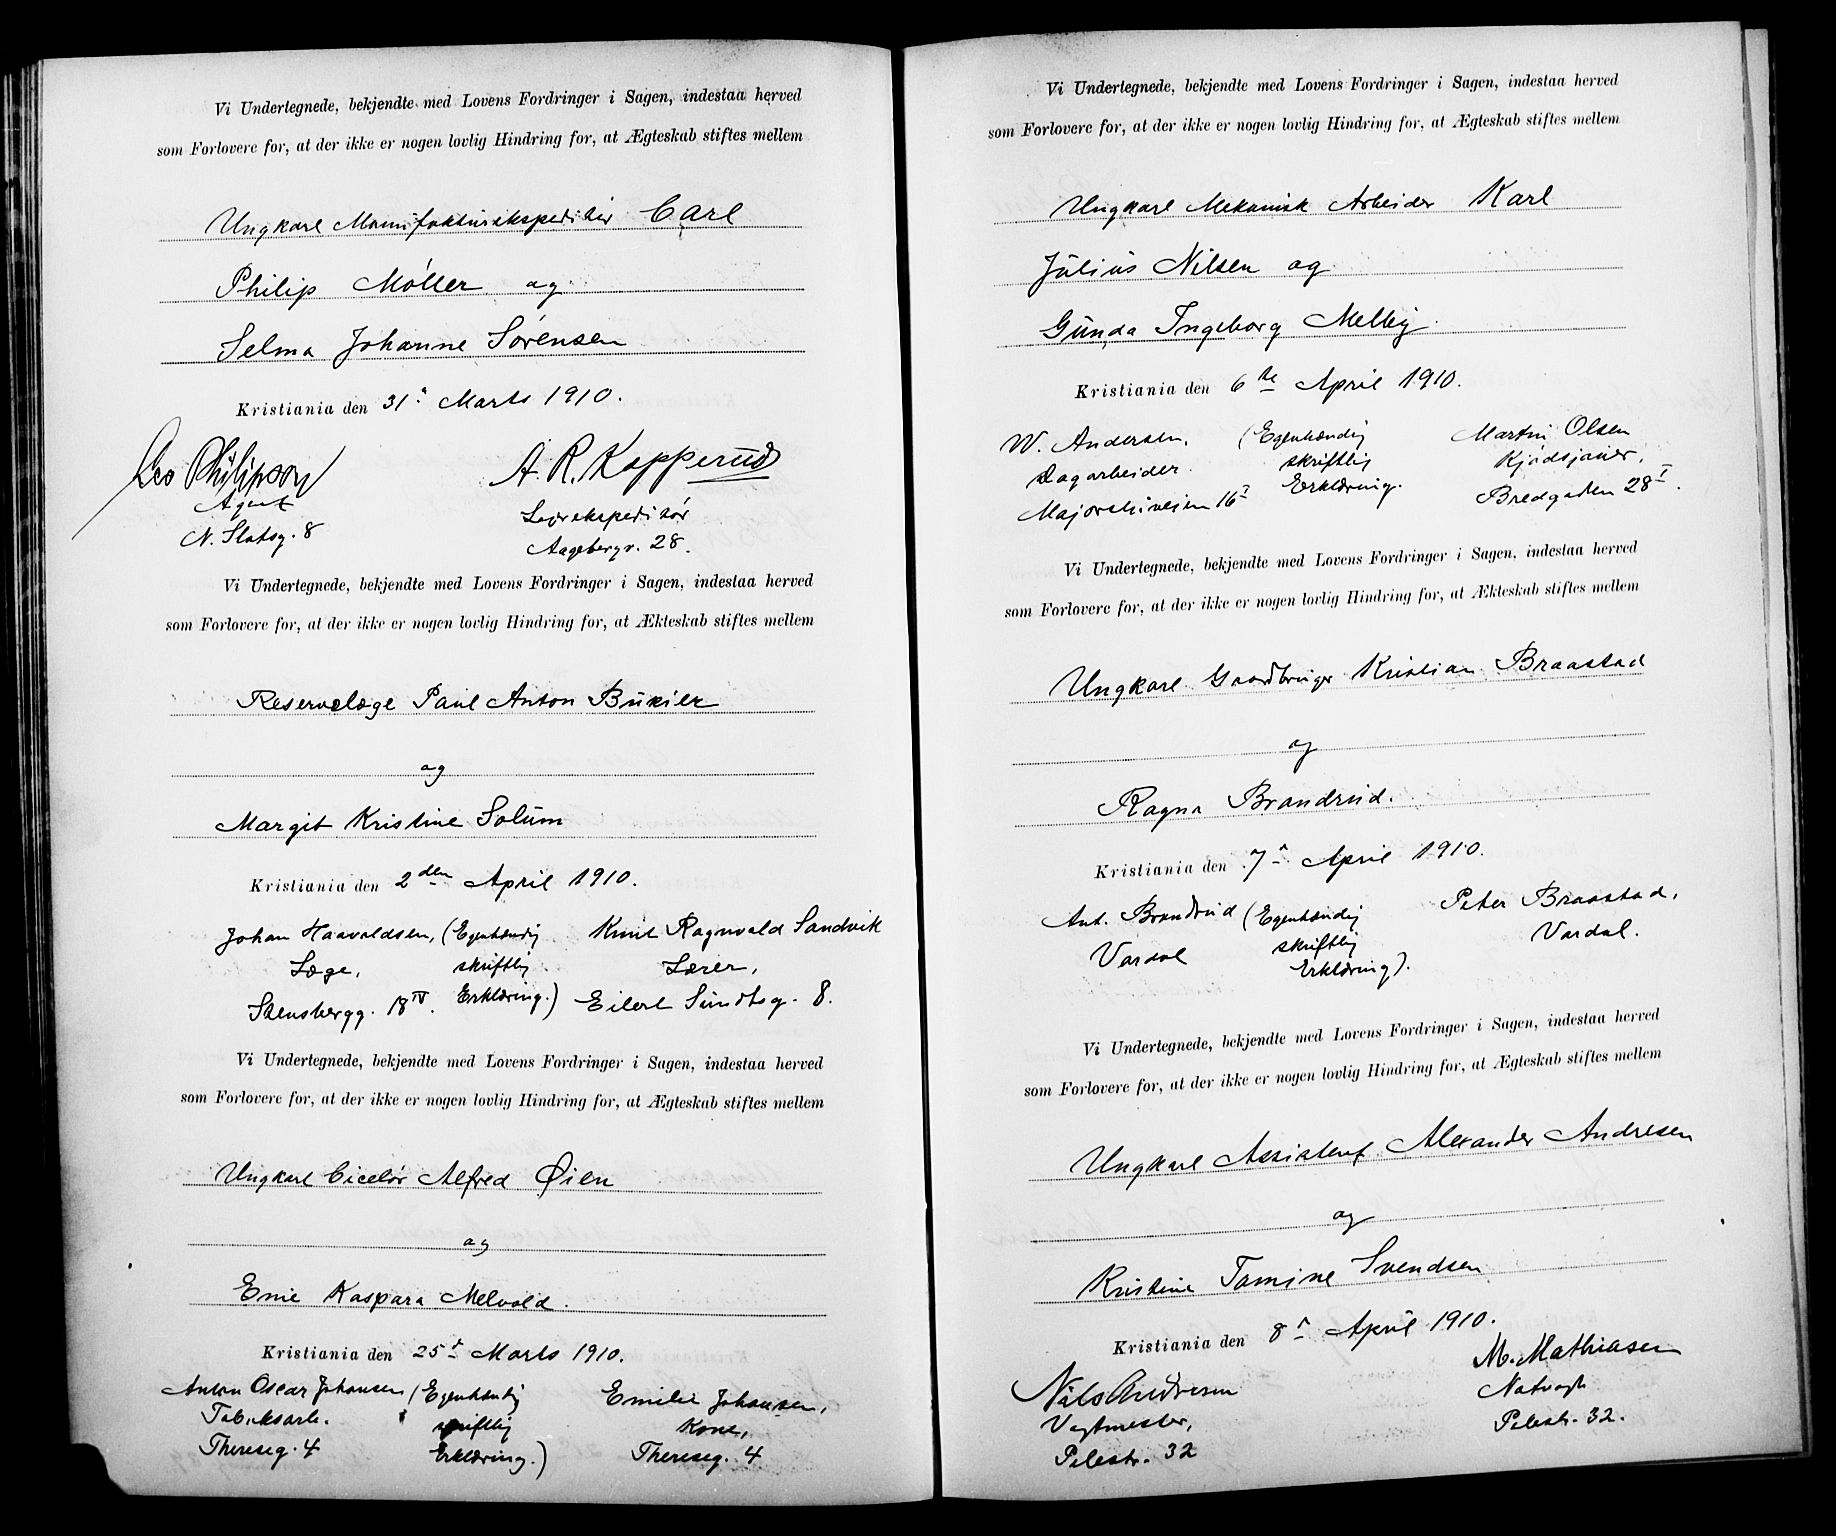 Vi Undertegnede, bekjendte med Lovens Fordringer i Sagen, indestaa herved
som Forlovere for, at der ikke er nogen lovlig Hindring for, at Ægteskab stiftes mellem
Ungkarl Manufakturekspeditør Carl
Philip Møller og
Selma Johanne Sørensen
Kristiania den 31. Marts 1910.
Leo Philipson A. R. Kopperud
Agent Lagerekspeditør
N. Slotsg. 8 Aagebergv. 28.
Vi Undertegnede, bekjendte med Lovens Fordringer i Sagen, indestaa herved
som Forlovere for, at der ikke er nogen lovlig Hindring for, at Ækteskab stiftes mellem
Reservelæge Paul Anton Bukier
og
Margit Kristine Solum
Kristiania den 2den April 1910.
Johan Haavaldsen, (Egenhændig Knut Ragnvald Sandvik
Læge, skriftlig Lærer,
Stensbergg. 18 IV. Erklæring.) Eilert Sundtsg. 8.
Vi Undertegnede, bekjendte med Lovens Fordringer i Sagen, indestaa herved
som Forlovere for, at der ikke er nogen lovlig Hindring for, at Ægteskab stiftes mellem
Ungkarl Ciselør Alfred Øien
og
Enie Kaspara Melvold.
Kristiania den 25de Marts 1910.
Anton Oscar Johansen (Egenhændig Emilie Johansen,
Fabrikarb. skriftlig Kone,
Thereseg. 4 Erklæring.) Thereseg. 4
Vi Undertegnede, bekjendte med Lovens Fordringer i Sagen, indestaa herved
som Forlovere for, at der ikke er nogen lovlig Hindring for, at Ægteskab stiftes mellem
Ungkarl Mekanisk Arbeider Karl
Julius Nilsen og
Gunda Ingeborg Melby.
Kristiania den 6te April 1910.
W. Andersen, (Egenhændig Martin Olsen
Dagarbeider. skriftlig
Majorstuveien 16 I Erklæring. Bredgaden 28 I.
Vi Undertegnede, bekjendte med Lovens Fordringer i Sagen, indestaa herved
som Forlovere for, at der ikke er nogen lovlig Hindring for, at Ækteskab stiftes mellem
Ungkarl Gaardbruger Kristian Braastad
og
Ragna Brandrud.
Kristiania den 7. April 1910.
Ant. Brandrud (Egenhændig Peter Braastad,
Vardal skriftlig Vardal.
Erklæring).
Vi Undertegnede, bekjendte med Lovens Fordringer i Sagen, indestaa herved
som Forlovere for, at der ikke er nogen lovlig Hindring for, at Ægteskab stiftes mellem
Ungkarl Assistent Alexander Andresen
og
Kristine Tomine Svendsen
Kristiania den 8. April 1910.
Nils Andresen M. Mathiasen
Vagtmester, Natvagt
Pilestr. 32 Pilestr. 32.